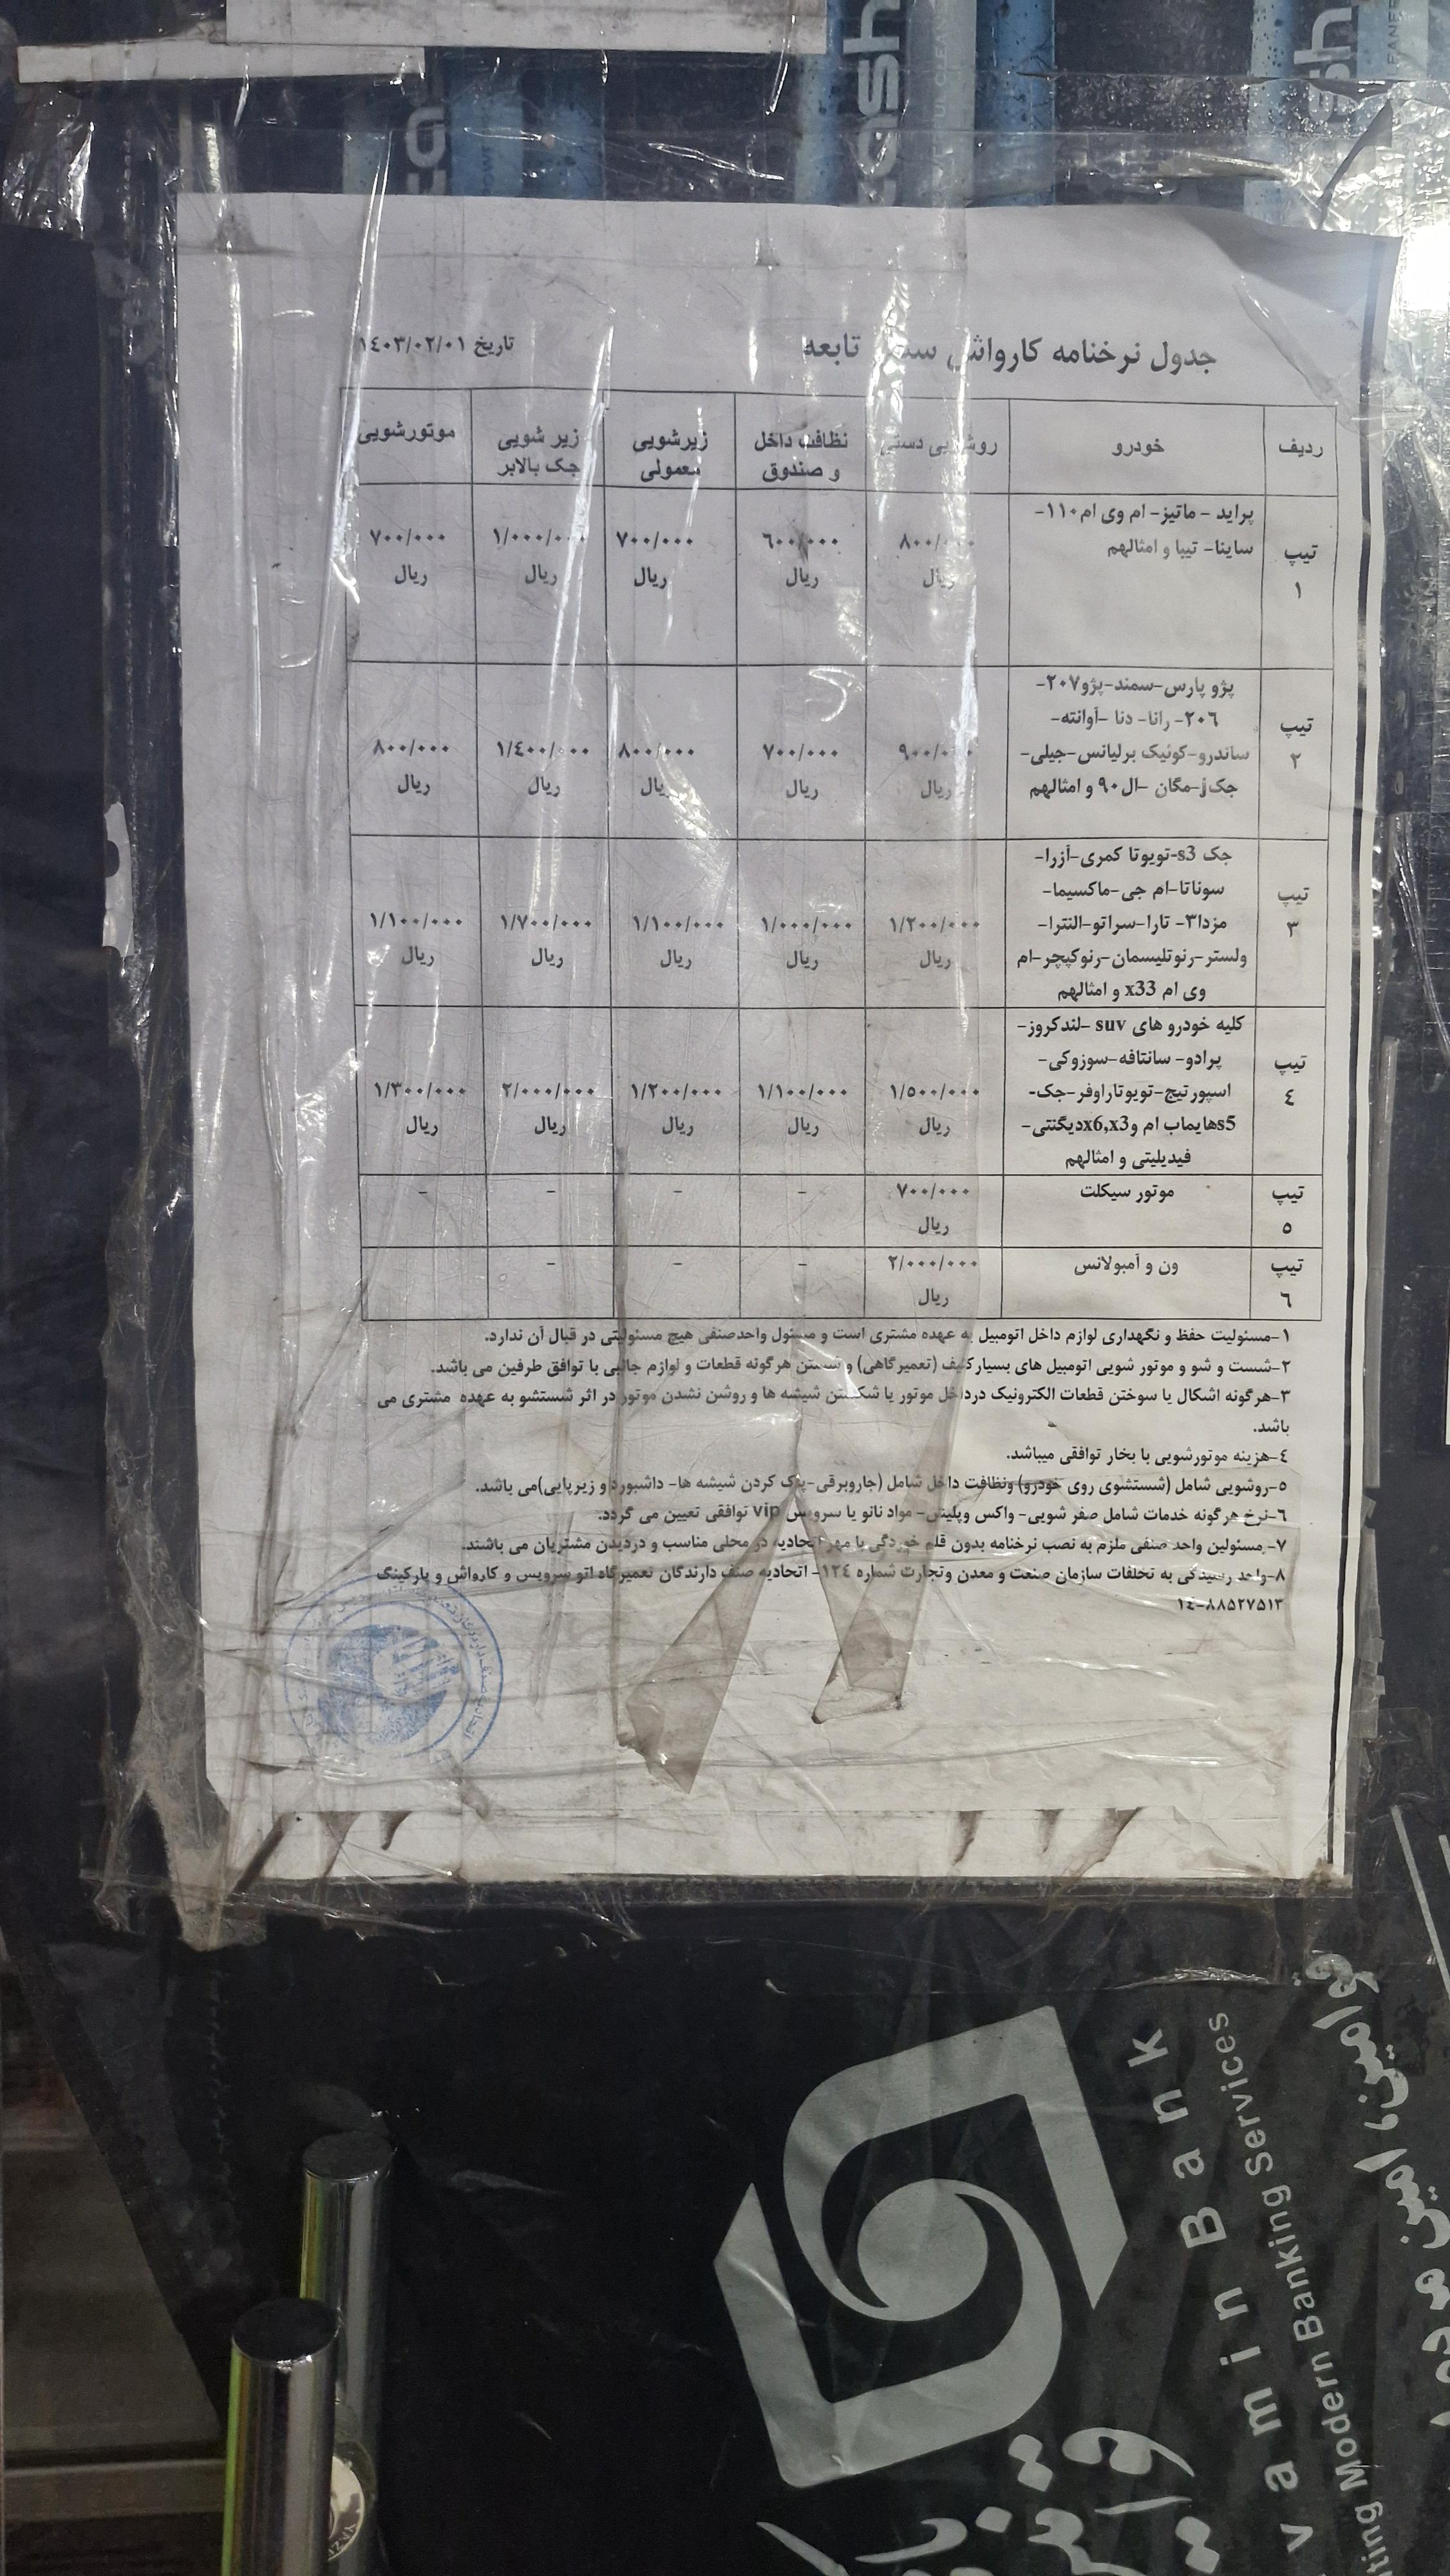 cash
جدول نرخنامه کارواش تابعه
تاریخ ۱۴۰۳/۰۲/۰۱
ردیف خودرو روشویی دستی نظافت داخل و صندوق زیرشویی معمولی زیر شویی جک بالابر موتورشویی
تیپ ۱
پراید - ماتیز- ام وی ام۱۱۰-
ساینا- تیبا و امثالهم
۸۰۰/۰۰۰ ریال ۶۰۰/۰۰۰ ریال ۷۰۰/۰۰۰ ریال ۱/۰۰۰/۰۰۰ ریال ۷۰۰/۰۰۰ ریال
تیپ ۲
پژو پارس-سمند-پژو۲۰۷-
۲۰۶- رانا- دنا -آوانته-
ساندرو-کوئیک برلیانس-جیلی-
جکj-مگان -ال۹۰ و امثالهم
۹۰۰/۰۰۰ ریال ۷۰۰/۰۰۰ ریال ۸۰۰/۰۰۰ ریال ۱/۴۰۰/۰۰۰ ریال ۸۰۰/۰۰۰ ریال
تیپ ۳
جک s3-تویوتا کمری-آزرا-
سوناتا-ام جی-ماکسیما-
مزدا۳- تارا-سراتو-النترا-
ولستر-رنوتلیسمان-رنوکپچر-ام
وی ام x33 و امثالهم
۱/۲۰۰/۰۰۰ ریال ۱/۰۰۰/۰۰۰ ریال ۱/۱۰۰/۰۰۰ ریال ۱/۷۰۰/۰۰۰ ریال ۱/۱۰۰/۰۰۰ ریال
تیپ ٤
کلیه خودرو های suv -لندکروز-
پرادو- سانتافه-سوزوکی-
اسپورتیج-تویوتاراوفر-جک-
s5هایماب ام وx6,x3دیگنتی-
فیدیلیتی و امثالهم
۱/۵۰۰/۰۰۰ ریال ۱/۱۰۰/۰۰۰ ریال ۱/۲۰۰/۰۰۰ ریال ۲/۰۰۰/۰۰۰ ریال ۱/۳۰۰/۰۰۰ ریال
تیپ ۵ موتور سیکلت ۷۰۰/۰۰۰ ریال - - - -
تیپ ٦ ون و آمبولانس ۲/۰۰۰/۰۰۰ ریال - - -
۱-مسئولیت حفظ و نگهداری لوازم داخل اتومبیل به عهده مشتری است و مسئول واحدصنفی هیچ مسئولیتی در قبال آن ندارد.
۲-شست و شو و موتور شویی اتومبیل های بسیارکثیف (تعمیرگاهی) و شستن هرگونه قطعات و لوازم جانبی با توافق طرفین می باشد.
۳-هرگونه اشکال یا سوختن قطعات الکترونیک درداخل موتور یا شکستن شیشه ها و روشن نشدن موتور در اثر شستشو به عهده مشتری می
باشد.
٤-هزینه موتورشویی با بخار توافقی میباشد.
۵-روشویی شامل (شستشوی روی خودرو) ونظافت داخل شامل (جاروبرقی-پاک کردن شیشه ها- داشبورد و زیرپایی)می باشد.
٦-نرخ هرگونه خدمات شامل صفر شویی- واکس وپلیش- مواد نانو یا سرویس vip توافقی تعیین می گردد.
۷- مسئولین واحد صنفی ملزم به نصب نرخنامه بدون قلم خوردگی با مهر اتحادیه در محلی مناسب و دردیدن مشتریان می باشند.
۸-واحد رسیدگی به تخلفات سازمان صنعت و معدن وتجارت شماره ۱۲٤- اتحادیه صنف دارندگان تعمیرگاه اتو سرویس و کارواش و پارکینگ
۸۸۵۲۷۵۱۳-۱٤
vamin Bank
Modern Banking Services